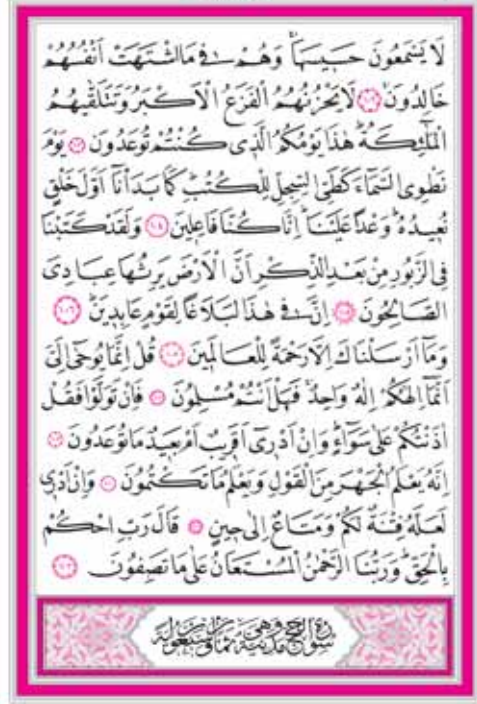 لَا يَسْمَعُونَ حَسِيسَهَاۚ وَهُمْ ف۪ي مَا اشْتَهَتْ اَنْفُسُهُمْ
خَالِدُونَۚ ﴿١٠٢﴾ لَا يَحْزُنُهُمُ الْفَزَعُ الْاَكْبَرُ وَتَتَلَقّٰيهُمُ
الْمَلٰٓئِكَةُۜ هٰذَا يَوْمُكُمُ الَّذ۪ي كُنْتُمْ تُوعَدُونَ ﴿١٠٣﴾ يَوْمَ
نَطْوِي السَّمَٓاءَ كَطَيِّ السِّجِلِّ لِلْكُتُبِۜ كَمَا بَدَأْنَٓا اَوَّلَ خَلْقٍ
نُع۪يدُهُۜ وَعْداً عَلَيْنَاۜ اِنَّا كُنَّا فَاعِل۪ينَ ﴿١٠٤﴾ وَلَقَدْ كَتَبْنَا
فِي الزَّبُورِ مِنْ بَعْدِ الذِّكْرِ اَنَّ الْاَرْضَ يَرِثُهَا عِبَادِيَ
الصَّالِحُونَ ﴿١٠٥﴾ اِنَّ ف۪ي هٰذَا لَبَلَاغاً لِقَوْمٍ عَابِد۪ينَۜ ﴿١٠٦﴾
وَمَٓا اَرْسَلْنَاكَ اِلَّا رَحْمَةً لِلْعَالَم۪ينَ ﴿١٠٧﴾ قُلْ اِنَّمَا يُوحٰٓى اِلَيَّ
اَنَّمَٓا اِلٰهُكُمْ اِلٰهٌ وَاحِدٌۚ فَهَلْ اَنْتُمْ مُسْلِمُونَ ﴿١٠٨﴾ فَاِنْ تَوَلَّوْا فَقُلْ
اٰذَنْتُكُمْ عَلٰى سَوَٓاءٍۜ وَاِنْ اَدْر۪ٓي اَقَر۪يبٌ اَمْ بَع۪يدٌ مَا تُوعَدُونَ ﴿١٠٩﴾
اِنَّهُ يَعْلَمُ الْجَهْرَ مِنَ الْقَوْلِ وَيَعْلَمُ مَا تَكْتُمُونَ ﴿١١٠﴾ وَاِنْ اَدْر۪ي
لَعَلَّهُ فِتْنَةٌ لَكُمْ وَمَتَاعٌ اِلٰى ح۪ينٍ ﴿١١١﴾ قَالَ رَبِّ احْكُمْ
بِالْحَقِّۜ وَرَبُّنَا الرَّحْمٰنُ الْمُسْتَعَانُ عَلٰى مَا تَصِفُونَ ﴿١١٢﴾
سُورَةُ الْحَجِّ مَدَنِيَّةٌ وَهِيَ ثَمَانٌ وَسَبْعُونَ اٰيَةً